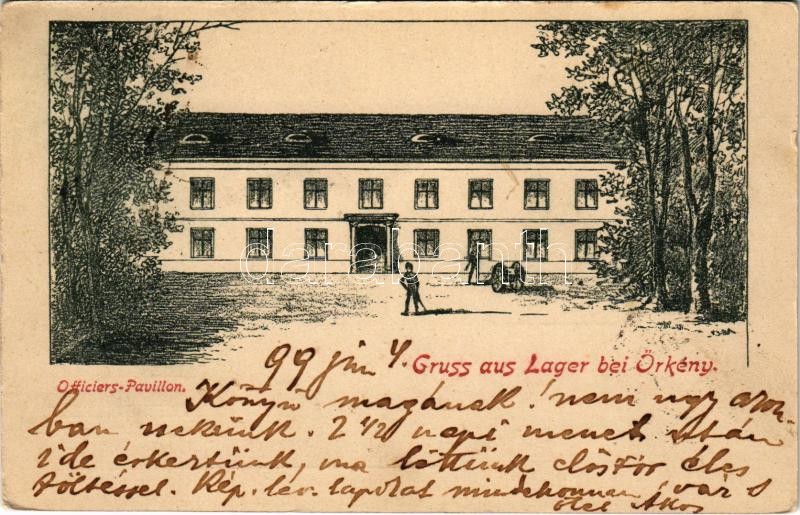 99 jún 4.
Gruss aus Lager bei Örkény.
Officiers-Pavillon.
Könyü magának! nem ugy azon-
ban nekünk. 2 1/2 napi menet után
ide érkeztünk, ma lőttünk először éles
töltéssel. Kép. lev. lapokat mindenhonnan vár s
ölel Ákos
darabanth